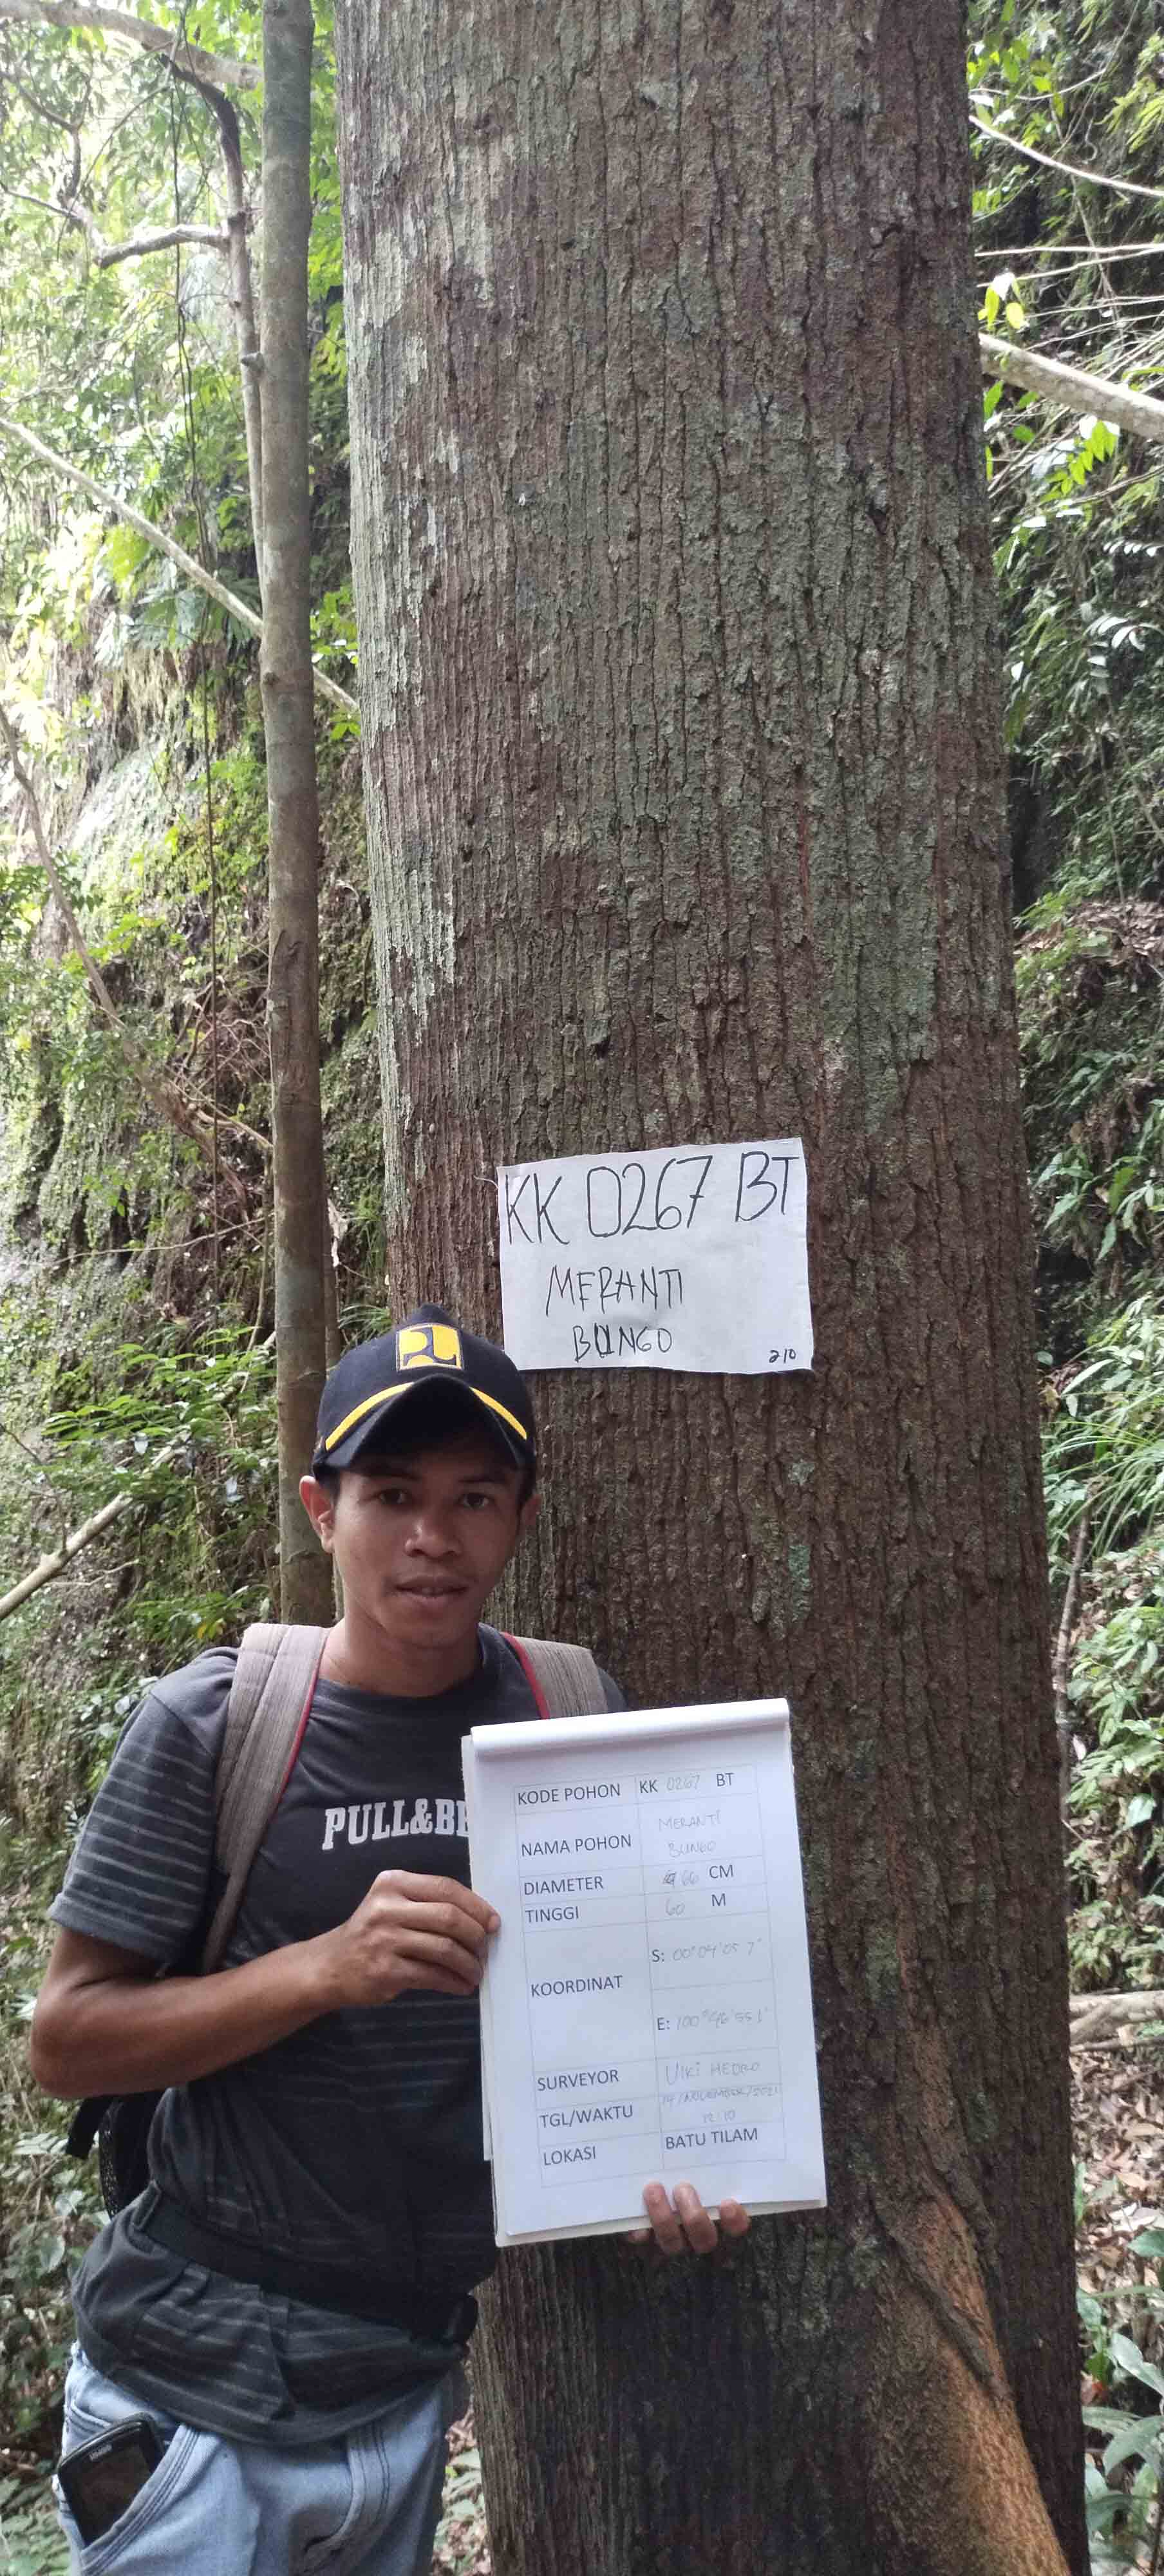 KK 0267 BT
MERANTI
BUNGO
210
PULL&BE
KODE POHON KK 0267 BT
NAMA POHON MERANTI
BUNGO
DIAMETER 66 CM
TINGGI 60 M
KOORDINAT
S: 00°04'05 7"
E: 100°46'55 1"
SURVEYOR UIKI HEDRO
TGL/WAKTU 14/NOVEMBER/2021
12:10
LOKASI BATU TILAM